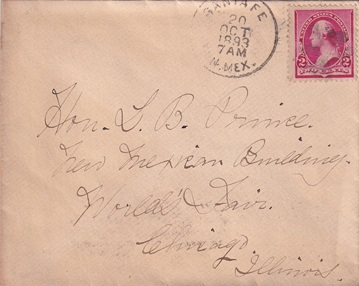 SANTA FE
20
OCT
1893
7AM
N. MEX.
2 2
Hon. L. B. Prince.
New Mexican Building.
World's Fair.
Chicago.
Illinois.